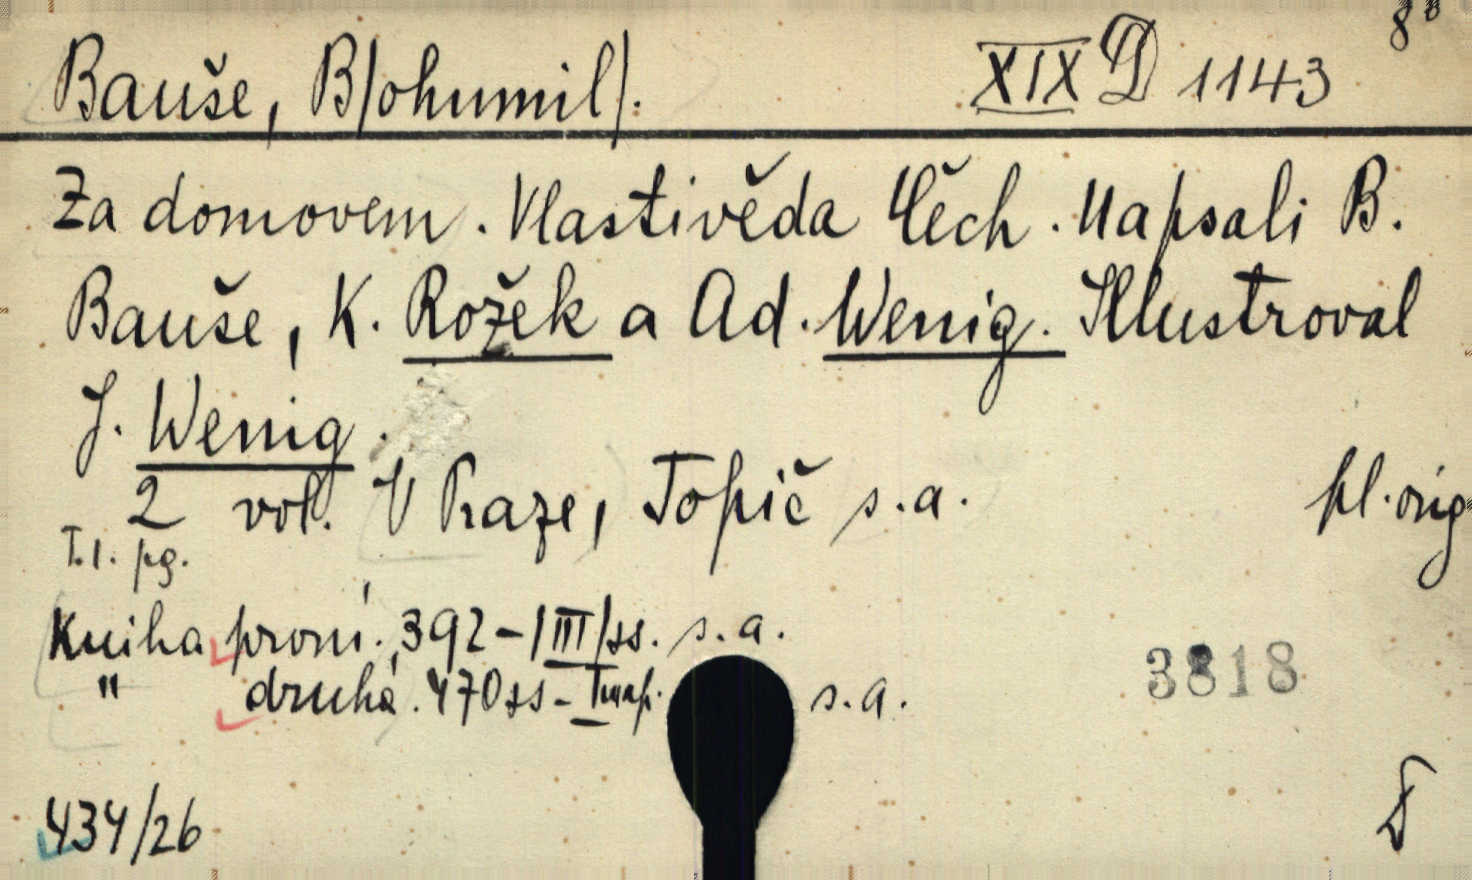 8°
Bauše, B/ohumil/. XIX D 1143
Za domovem. Vlastivěda Čech. Napsali B.
Bauše, K. Rožek a Ad. Wenig. Illustroval
J. Wenig.
2 vol. V Praze, Topič s.a. pl. orig
T.1. pg.
Kniha první. 392-/III/ss. s.a.
" druhá. 470ss-I map. s.a.
3818
434/26